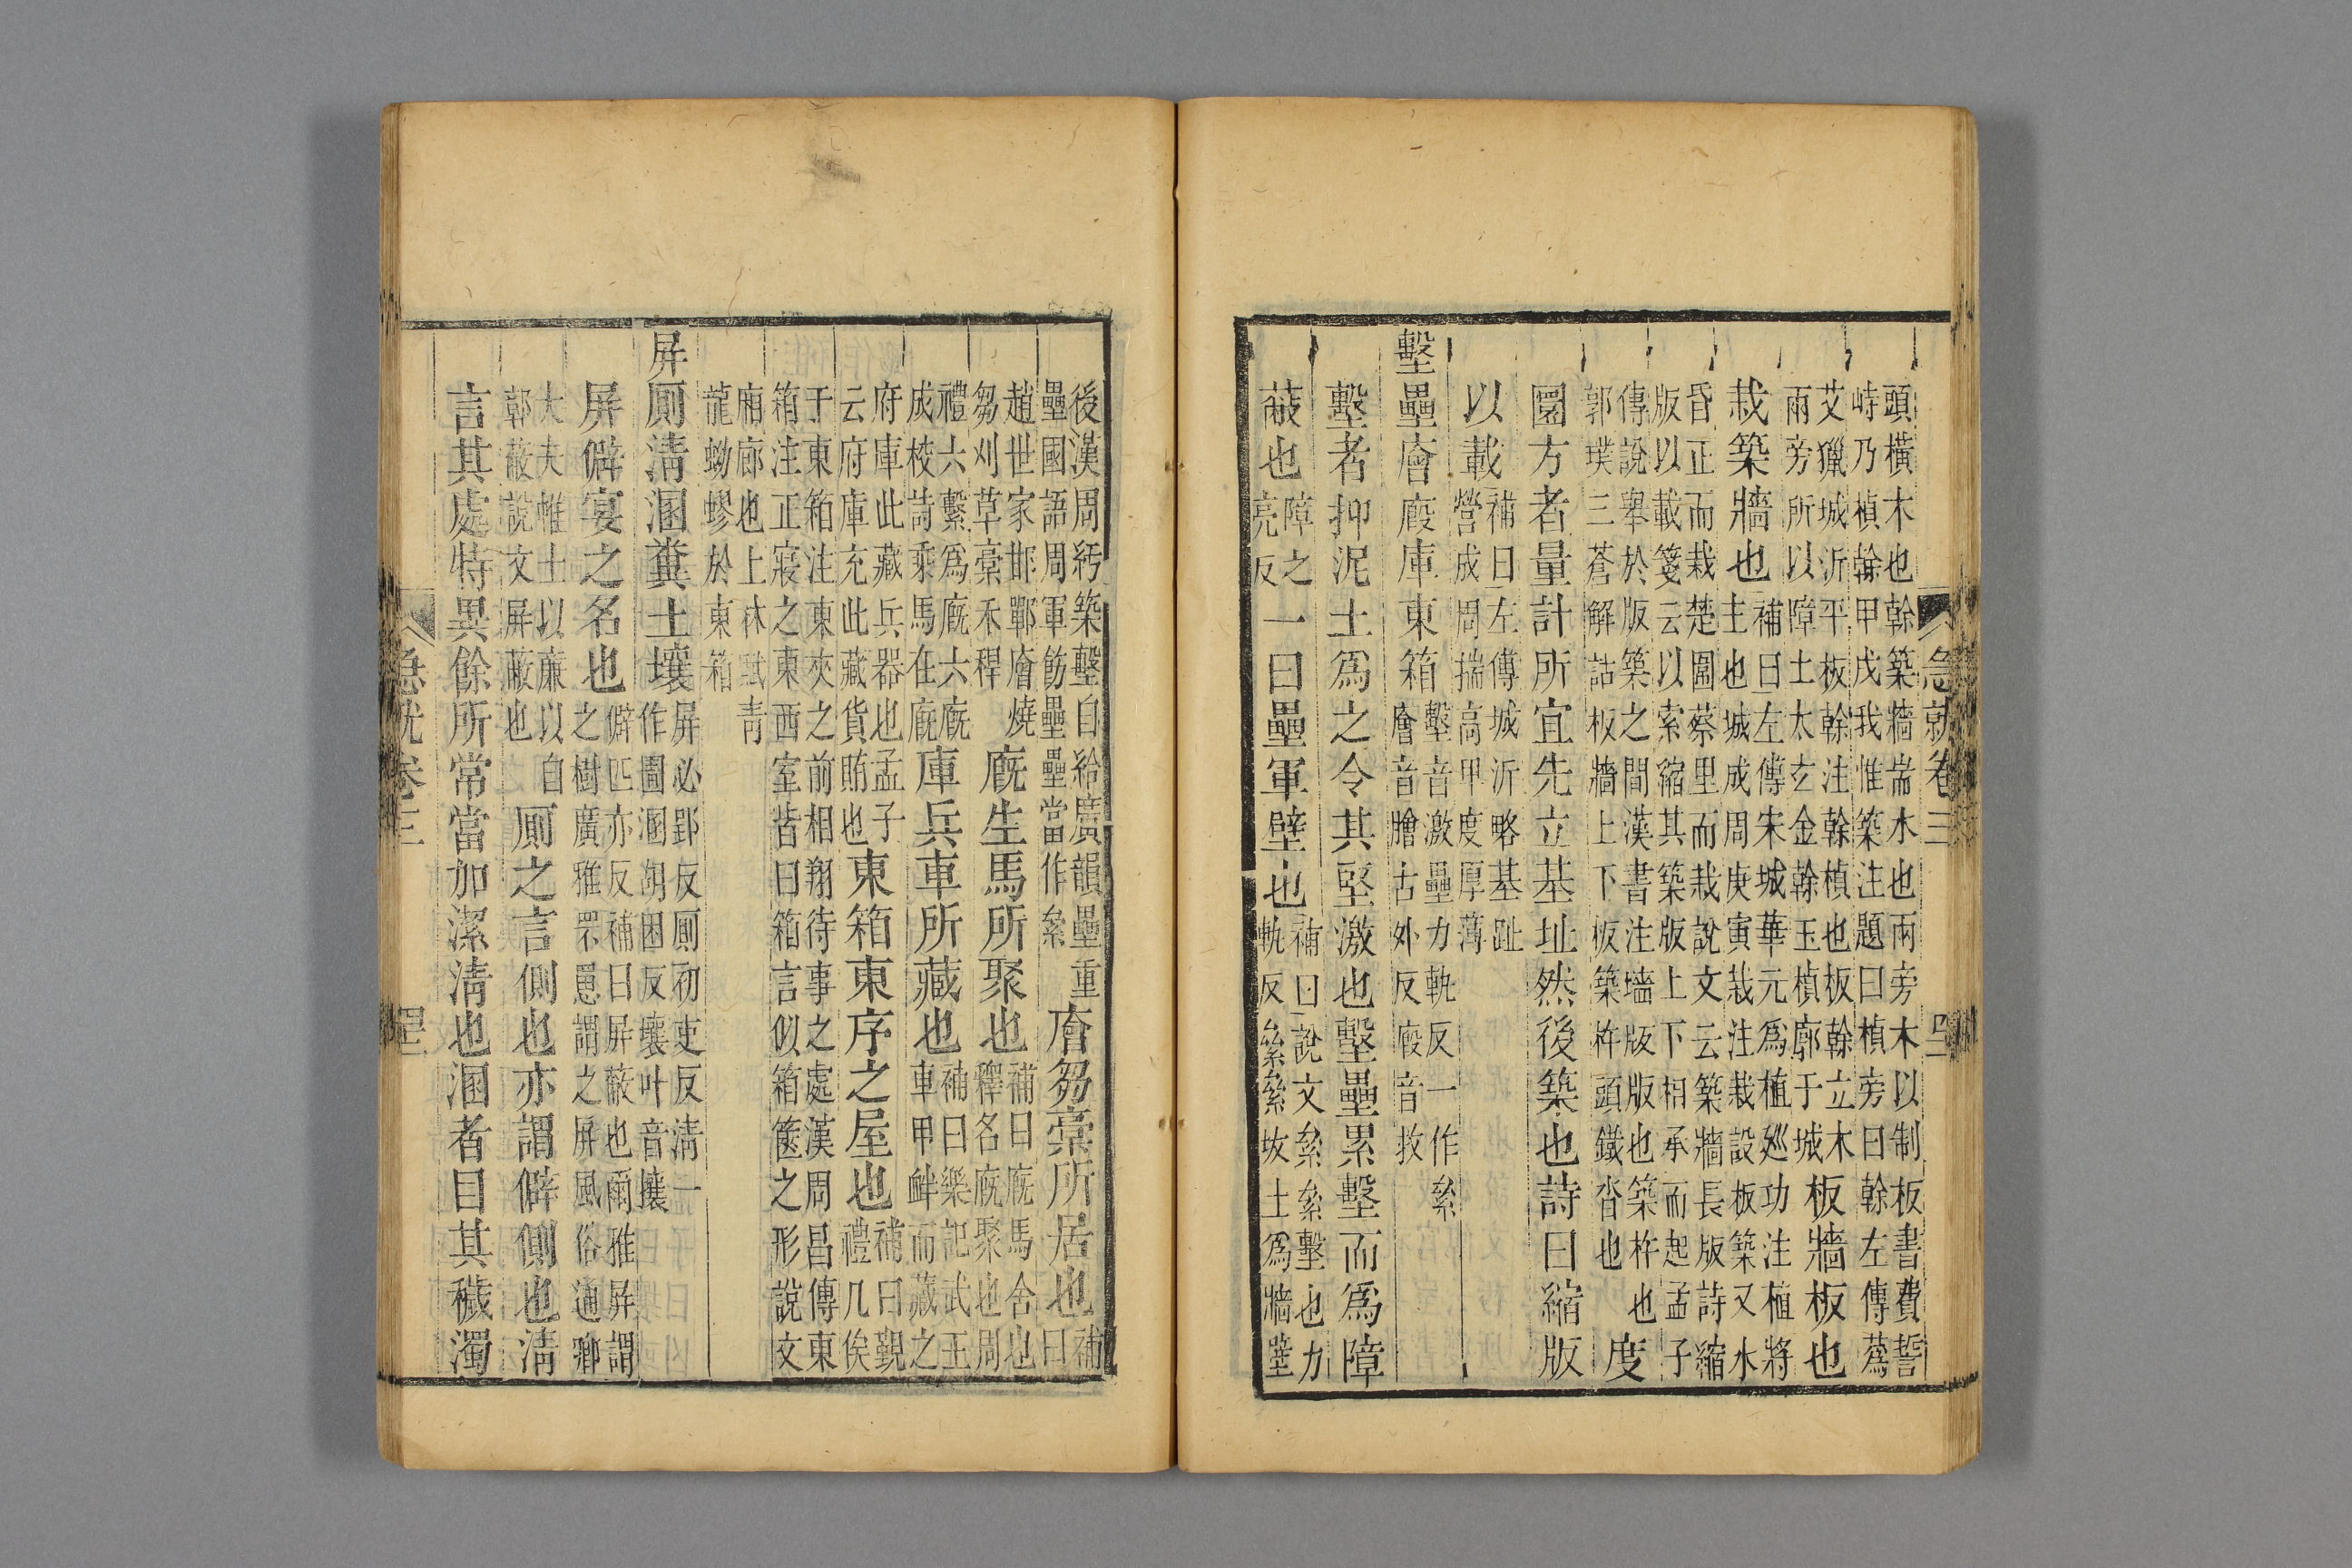 急就卷三
頭橫木也幹築牆耑木也兩旁木以制板書費誓
峙乃楨幹甲戌我惟築注題曰楨旁曰幹左傳蒍
艾獵城沂平板幹注幹楨也板幹立木
兩旁所以障土太玄金幹玉楨廓于城
板牆板也
栽築牆也
補曰左傳宋城華元爲植巡功注植將
主也城成周庚寅栽注栽設板築又水
昏正而栽楚圍蔡里而栽說文云築牆長版詩縮
版以載箋云以索縮其築版上下相承而起孟子
傳說舉於版築之間漢書注墻版版也築杵也
郭璞三蒼解詁板牆上下板築杵頭鐵沓也
度
圜方者量計所宜先立基址然後築也詩曰縮版
以載
補曰左傳城沂略基趾
營成周揣高甲度厚薄
墼壘廥廄庫東箱
墼音激壘力軌反一作絫
廥音膾古外反廄音救
墼者抑泥土爲之令其堅激也墼壘累墼而爲障
蔽也
障之
亮反
一曰壘軍壁也
補曰說文絫絫墼也力
軌反絫絫坺土爲牆壁
後漢周紆築墼自給廣韻壘重
壘國語周軍飭壘壘當作絫
廥芻稾所居也
補
曰
趙世家邯鄲廥燒
芻刈草稾禾稈
廄生馬所聚也
補曰廄馬舍也
釋名廄聚也周
禮六繫爲廄六廄
成校詩乘馬在廄
庫兵車所藏也
補曰樂記武王
車甲衅而藏之
府庫此藏兵器也孟子
云府庫充此藏貨賄也
東箱東序之屋也
補曰覲
禮几俟
于東箱注東夾之前相翔待事之處漢周昌傳東
箱注正寢之東西室皆曰箱言似箱篋之形說文
廂廊也上林賦青
龍蚴蟉於東箱
屏廁清溷糞土壤
屏必郢反廁初吏反清一
作圊溷胡困反壤叶音攘
屏僻宴之名也
僻匹亦反補曰屏蔽也爾雅屏謂
之樹廣雅罘罳謂之屏風俗通卿
大夫帷士以簾以自
郭蔽說文屏蔽也
廁之言側也亦謂僻側也清
言其處特異餘所常當加潔清也溷者目其穢濁
急就卷三